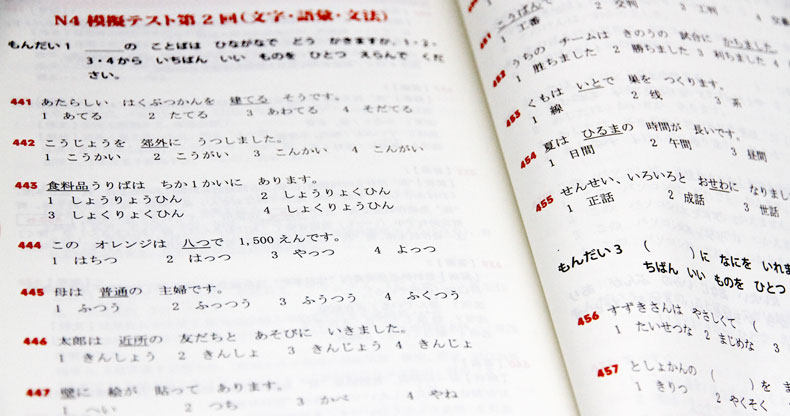 N4 模擬テスト第2回(文字・語彙・文法)
もんだい1 ＿＿＿の ことばは ひらがなで どう かきますか。1・2・
3・4から いちばん いい ものを ひとつ えらんで くだ
さい。
441 あたらしい はくぶつかんを 建てる そうです。
1 あてる 2 たてる 3 あわてる 4 そだてる
442 こうじょうを 郊外に うつしました。
1 こうかい 2 こうがい 3 こんかい 4 こんがい
443 食料品うりばは ちか1かいに あります。
1 しょうりょうひん 2 しょうりょくひん
3 しょくりょくひん 4 しょくりょうひん
444 この オレンジは 八つで 1,500えんです。
1 はちつ 2 はっつ 3 やっつ 4 よっつ
445 母は 普通の 主婦です。
1 ふつう 2 ふっつう 3 ふうつう 4 ふくつう
446 太郎は 近所の 友だちと あそびに いきました。
1 きんしょう 2 きんしょ 3 きんじょう 4 きんじょ
447 壁に 絵が 貼って あります。
1 へい 2 つち 3 かべ 4 やね
451 こうばんで
1 工番 2 交判 3 工判 4 交番
452 うちの チームは きのうの 試合に かちました
1 胜ちました 2 勝ちました 3 利ちました 4
453 くもは いとで 巣を つくります。
1 線 2 线 3 糸
454 夏は ひる間の 時間が 長いです。
1 日間 2 午間 3 昼間
455 せんせい、いろいろと おせわに なりまし
1 正話 2 成話 3 世話
もんだい3 ( )に なにを いれま
ちばん いい ものを ひとつ
456 すずきさんは やさしくて (
1 たいせつな 2 まじめな 3
457 としょかんの ( )を ま
1 きりつ 2 やくそく